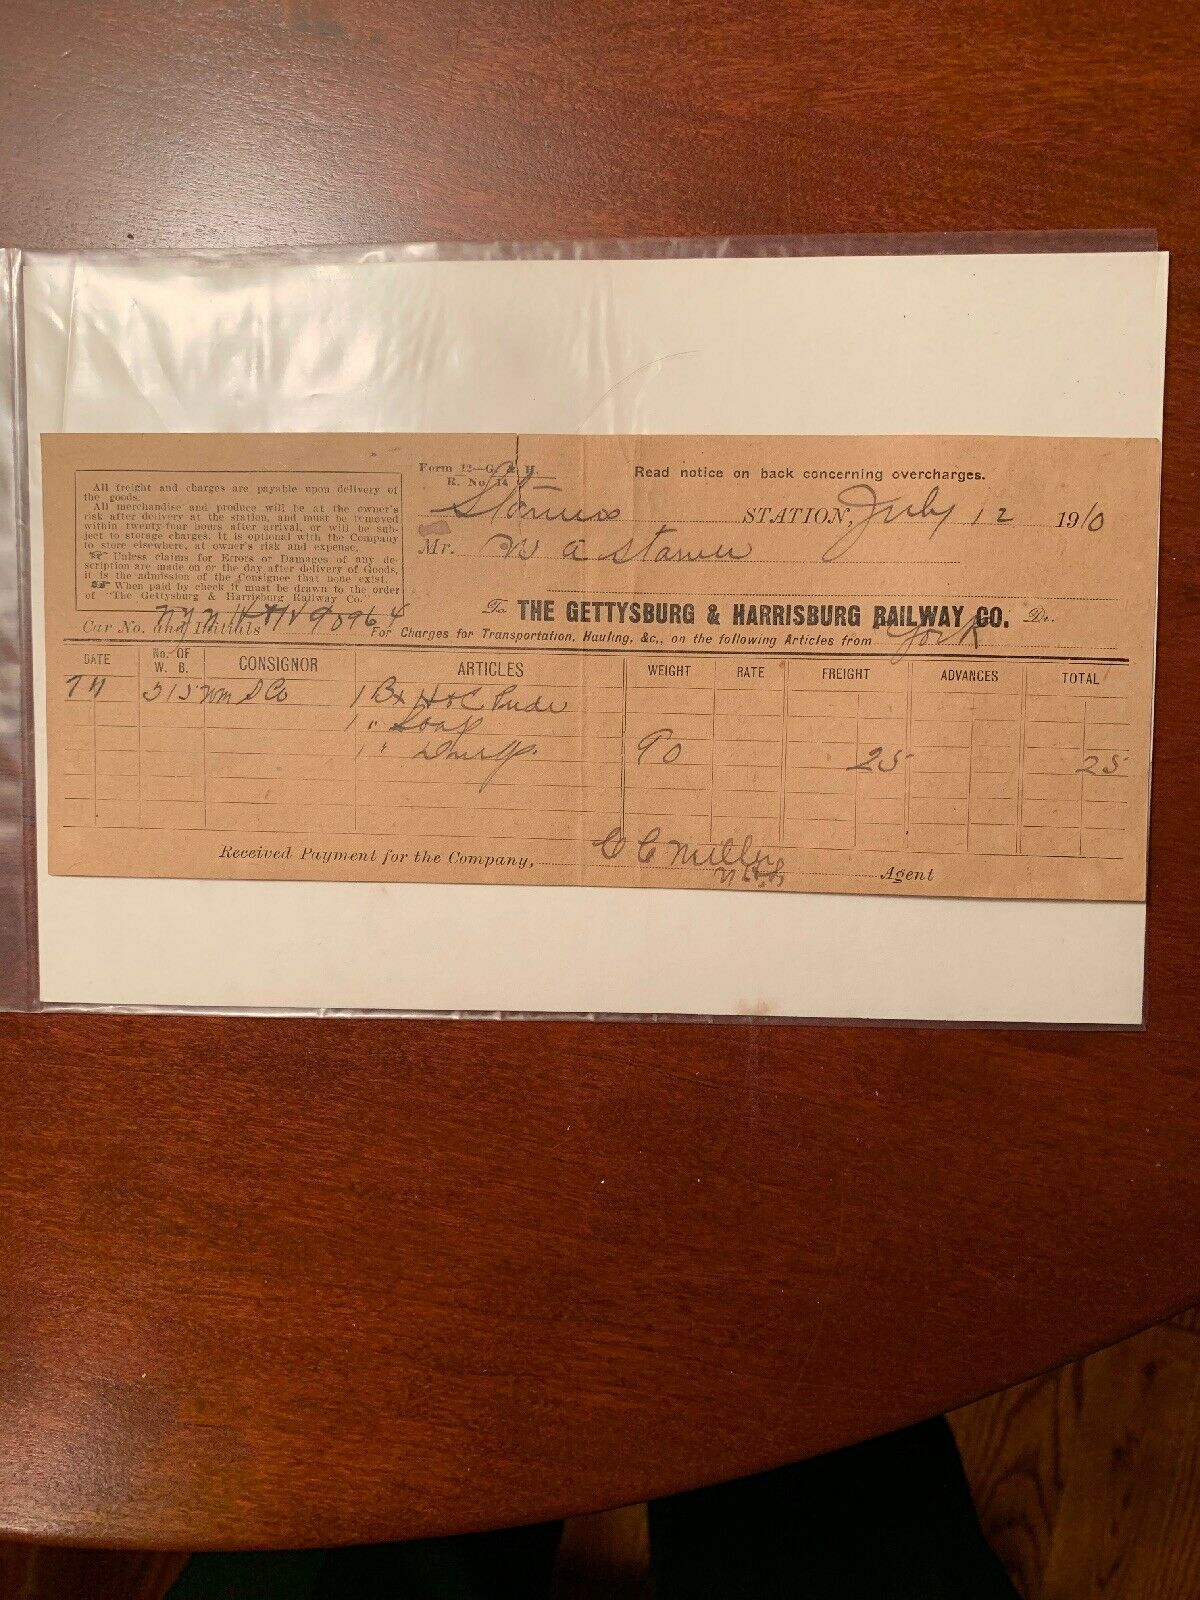 Form 12—G. & H.
R. No. 14
Read notice on back concerning overcharges.
All freight and charges are payable upon delivery of
the goods.
All merchandise and produce will be at the owner's
risk after delivery at the station, and must be removed
within twenty-four hours after arrival, or will be sub-
ject to storage charges. It is optional with the Company
to store elsewhere, at owner's risk and expense.
Unless claims for Errors or Damages of any de-
scription are made on or the day after delivery of Goods,
it is the admission of the Consignee that none exist.
When paid by check it must be drawn to the order
of "The Gettysburg & Harrisburg Railway Co."
STATION, July 12 1910
Mr. W a Starner
To THE GETTYSBURG & HARRISBURG RAILWAY CO. Dr.
Car No. and Initials N Y N H & H 90964
For Charges for Transportation, Hauling, &c., on the following Articles from York
DATE No. OF W. B. CONSIGNOR ARTICLES WEIGHT RATE FREIGHT ADVANCES TOTAL
515 Wm S Co 1 Bx
1 " Soap
1 " 90 25 25
Received Payment for the Company, C C Miller Agent